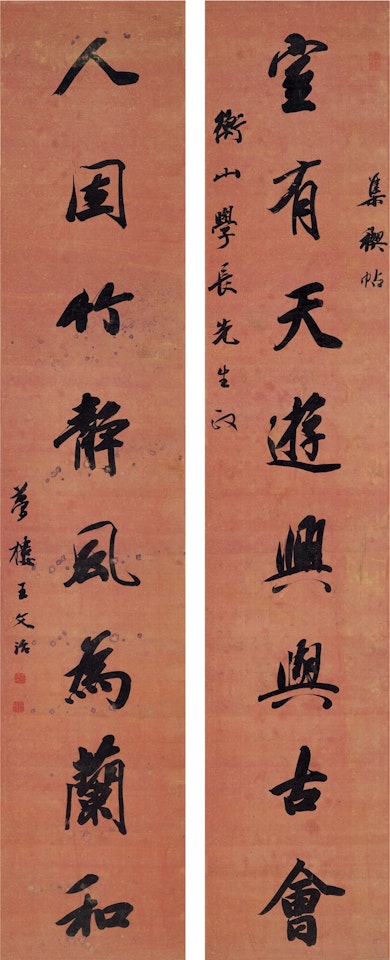 集禊帖
室有天遊興與古會
衡山學長先生政
人因竹靜風為蘭和
夢樓王文治